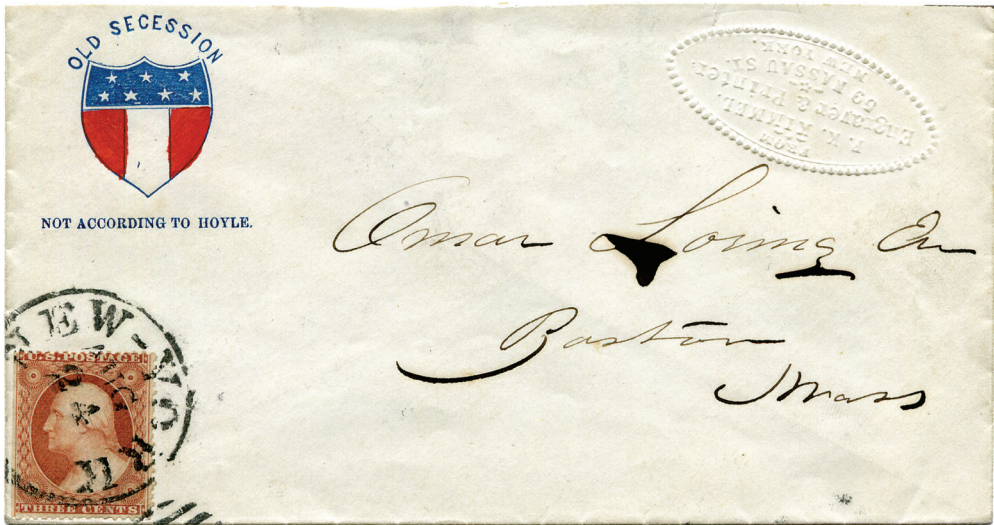 OLD SECESSION
NOT ACCORDING TO HOYLE.
FROM
KIMMEL.
Engraver & Printer.
59 NASSAU ST.
NEW YORK.
Omar Loring
Boston
Mass
NEW-YORK
U.S. POSTAGE
THREE CENTS